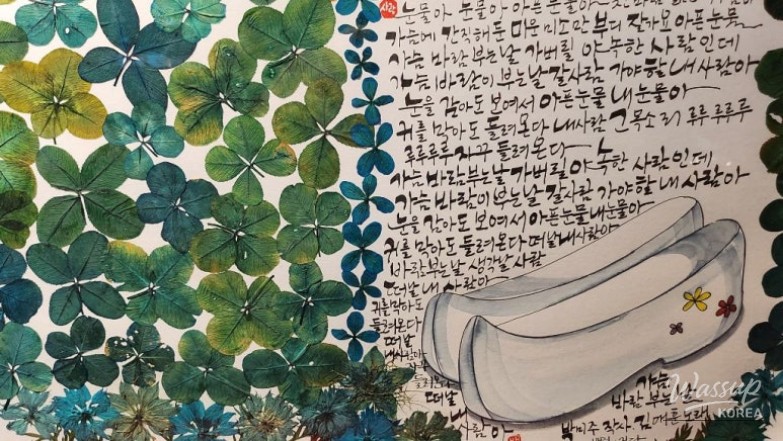 사랑
눈물아 눈물아 아픈 눈물아
가슴에 간직해 둔 미운 미소만 부터 잘자요 아픈 눈물
가슴 바람 부는날 가버릴 야속한 사람인데
가슴 바람이 부는날 갈사람 가야 할 내 사람아
눈을 감아도 보여서 아픈눈물 내 눈물아
귀를 막아도 들려온다 내사람 그 목소리 루루 루루루
루루루루 자꾸 들려온다
가슴 바람부는날 가버릴 야속한 사람인데
가슴 바람이 부는날 갈사람 가야할 내 사람아
눈을 감아도 보여서 아픈눈물내눈물아
귀를 막아도 들려온다 떠날내사람아
바람부는날 생각날 사람
떠날 내 사람아
귀를막아도
들려온다
떠날
내사람아
들려온다
떠날
내
사람아
가슴
바람 부는
박미주 작사 김
Wassup
KOREA